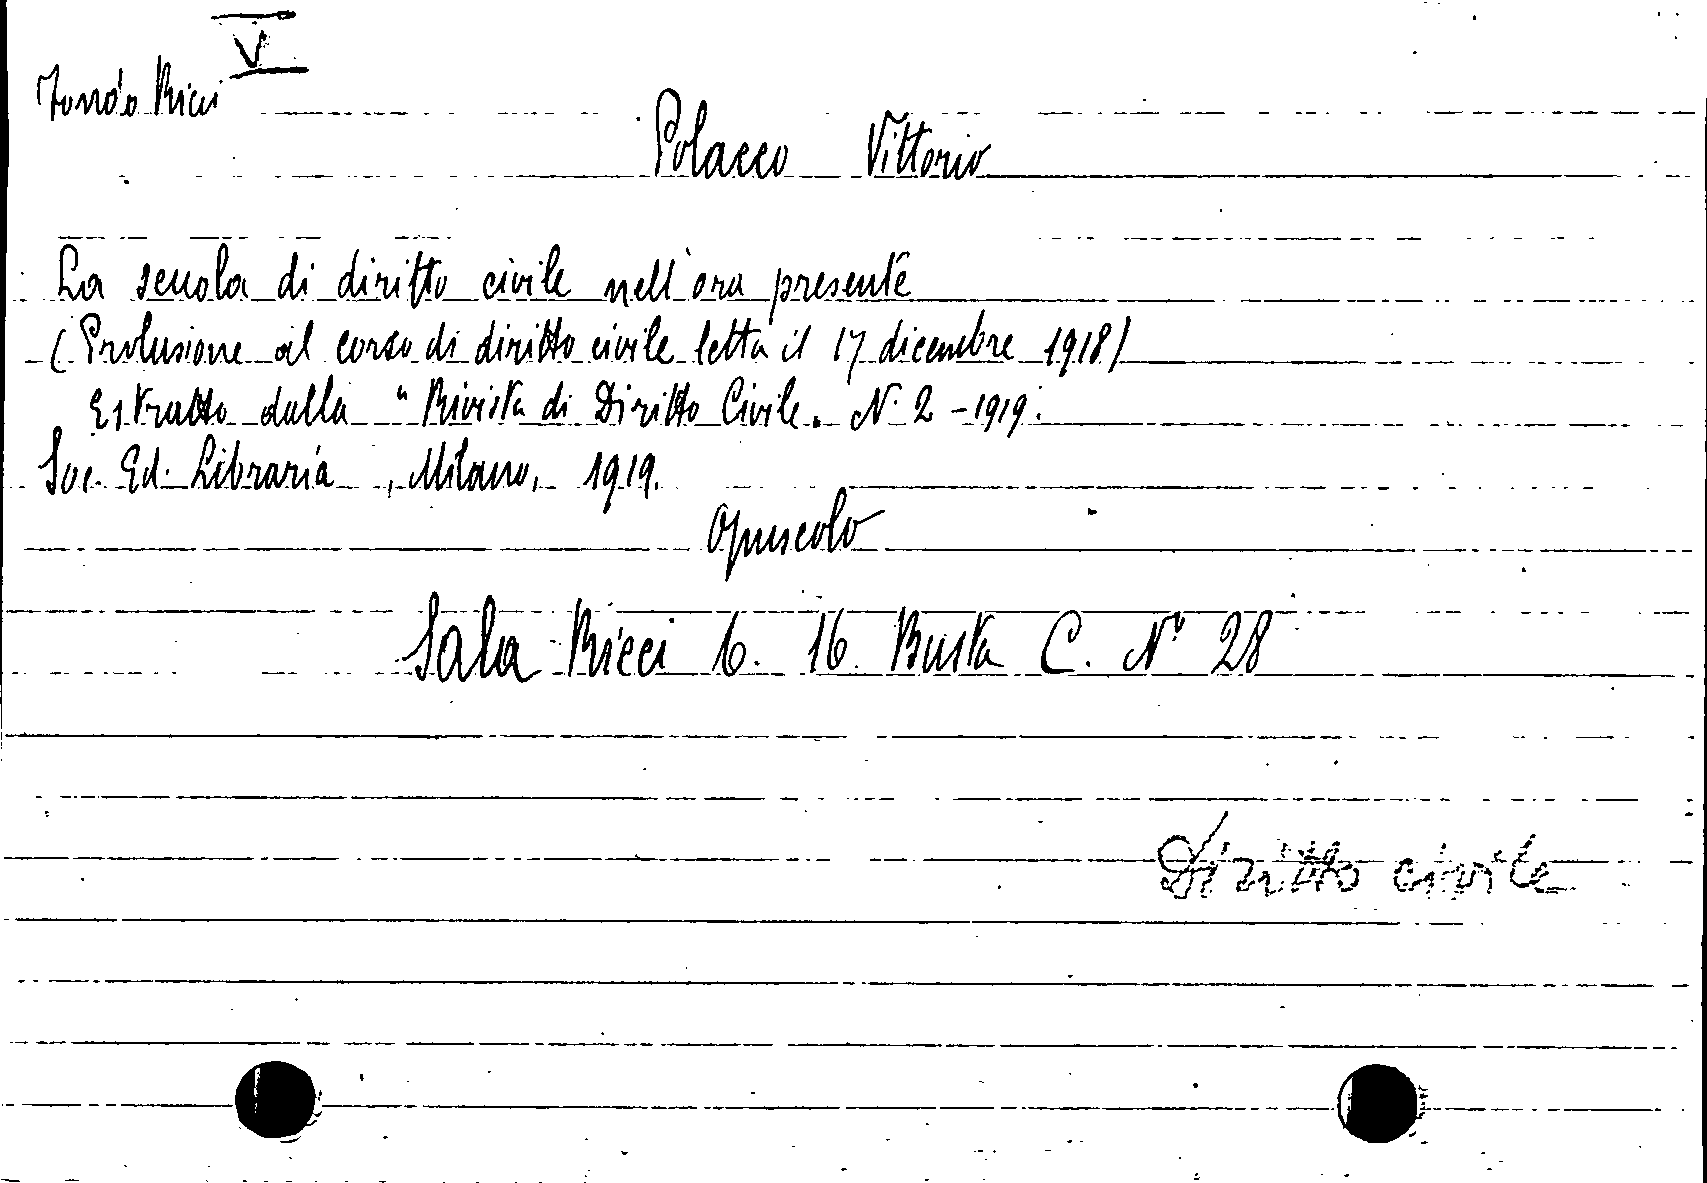 V
Fondo Ricci
Polacco Vittorio
La scuola di diritto civile nell'ora presente
(Prolusione al corso di diritto civile letta il 17 dicembre 1918)
Estratto dalla "Rivista di Diritto Civile. N. 2 - 1919.
Soc. Ed. Libraria, Milano, 1919.
Opuscolo
Sala Ricci 6. 16. Busta C. N° 28
Diritto civile